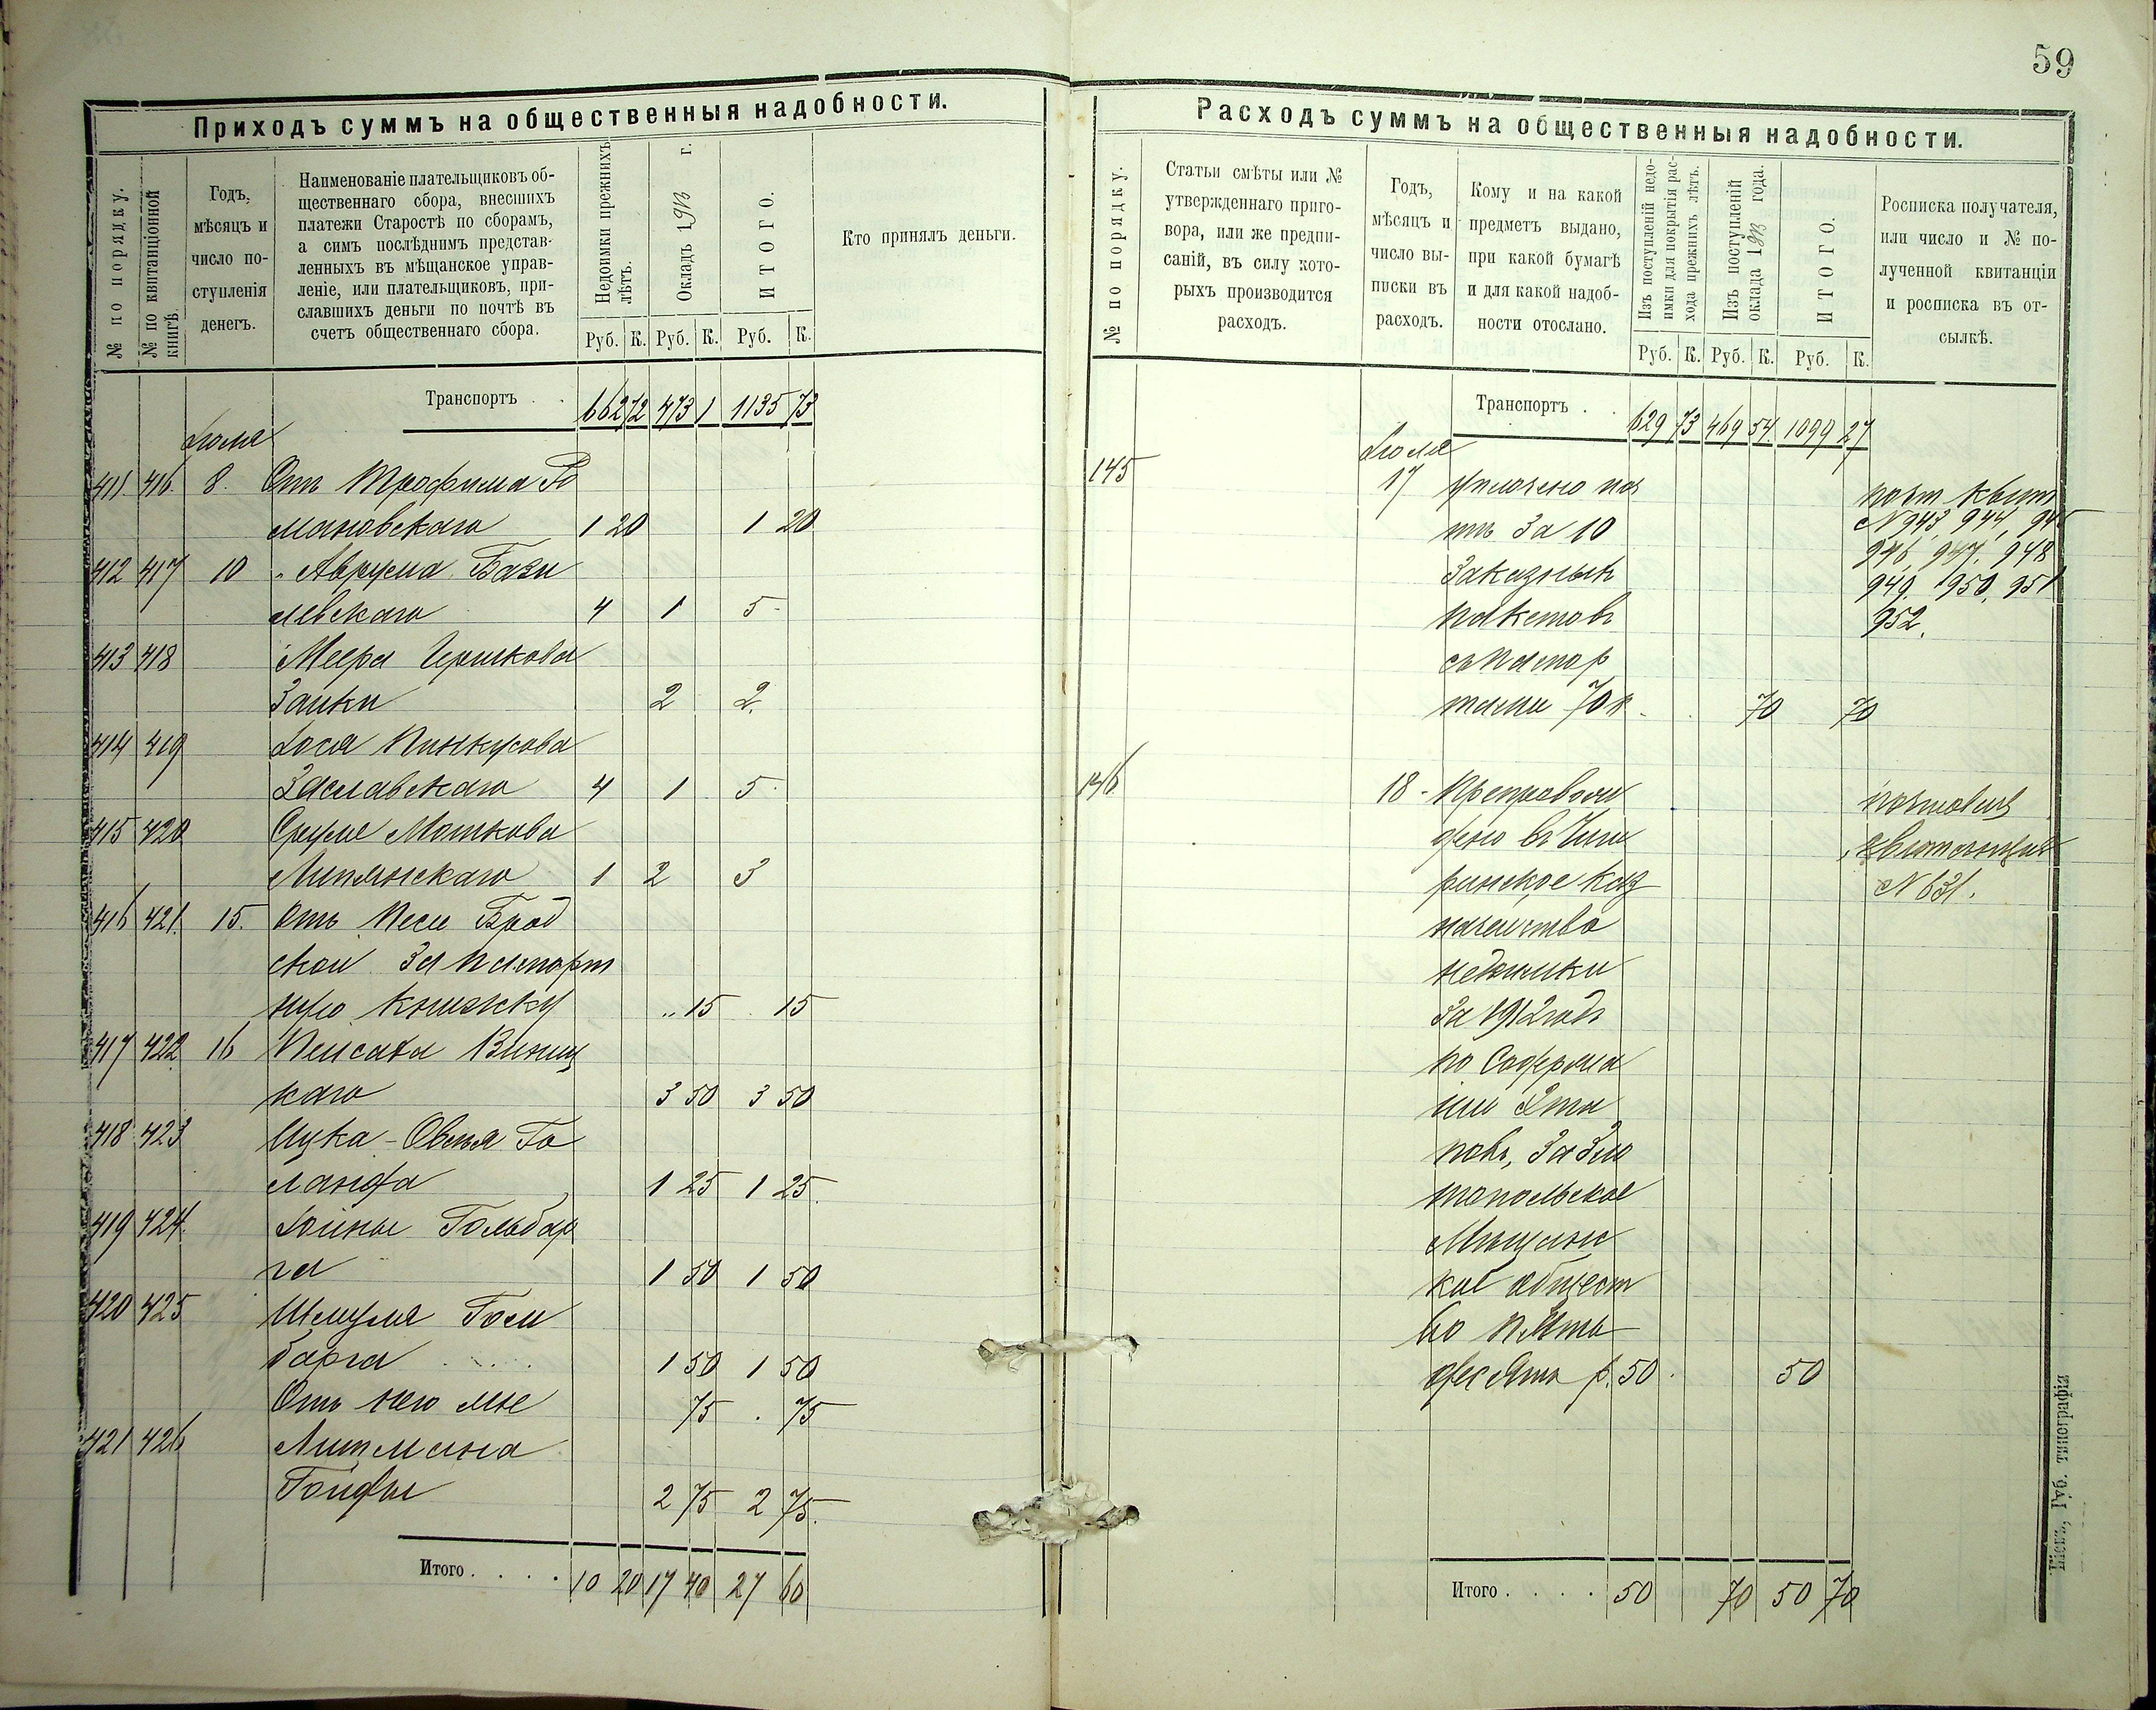 59
Приходъ суммъ на общественныя надобности.
№ по порядку.
№ по квитанціонной книгѣ.
Годъ, мѣсяцъ и число поступленія денегъ.
Наименованіе плательщиковъ об-
щественнаго сбора, внесшихъ
платежи Старостѣ по сборамъ,
а симъ послѣднимъ представ-
ленныхъ въ мѣщанское управ-
леніе, или плательщиковъ, при-
славшихъ деньги по почтѣ въ
счетъ общественнаго сбора.
Недоимки прежнихъ лѣтъ.
Окладъ 1913 г.
ИТОГО.
Кто принялъ деньги.
Руб. К. Руб. К. Руб. К.
Транспортъ . . 662 72 473 1 1135 73
Іюля
411 416. 8. Отъ Трофима Ро
мановскаго 1 20 1 20
412 417 10 " Аврума Бази
левскаго 4 1 5
413 418 Меера Ицикова
Заики 2 2.
414 419 Іося Пинкусова
Заславскаго 4 1 5
415 420 Сруля Мошкова
Липянскаго 1 2 3
416 421. 15. Отъ Песи Брод
ской за паспорт
ную книжку " 15 15
417 422 16 Пейсаха Виниц
каго 3 50 3 50
418 423 Ицка-Овсея Го
ланда 1 25 1 25
419 424. Іойны Гольдбар
га 1 50 1 50
420 425 Шмуля Голи
барга 1 50 1 50
Отъ него же 75 . 75
421 426 Липмана
Гойфы 2 75 2 75.
Итого . . . . 10 20 17 40 27 60
Расходъ суммъ на общественныя надобности.
№ по порядку.
Статьи смѣты или №
утвержденнаго приго-
вора, или же предпи-
саній, въ силу кото-
рыхъ производится
расходъ.
Годъ,
мѣсяцъ и
число вы-
писки въ
расходъ.
Кому и на какой
предметъ выдано,
при какой бумагѣ
и для какой надоб-
ности отослано.
Изъ поступленій недо-
имки для покрытія рас-
хода прежнихъ лѣтъ.
Изъ поступленій
оклада 1913 года.
ИТОГО.
Росписка получателя,
или число и № по-
лученной квитанціи
и росписка въ от-
сылкѣ.
Руб. К. Руб. К. Руб. К.
Транспортъ . . 629 73 469 54 1099 27
Іюля
145 17 Уплочено поч
тѣ за 10
заказныхъ
пакетовъ
съ паспор
тами 70 к. 70 70
почт. квит.
№ 943, 944, 945
946, 947, 948
949, 950, 951
952.
146 18 - Препровож
дено въ Чиги
ринское каз
начейство
недоимки
за 1912 годъ
по содержа
нію Эта
повъ, за Зла
топольское
Мѣщанс
кое общест
во пять
десять р. 50. 50
почтовая
квитанция
№ 631.
Итого . . . . 50 70 50 70
Кіевъ, Губ. типографія